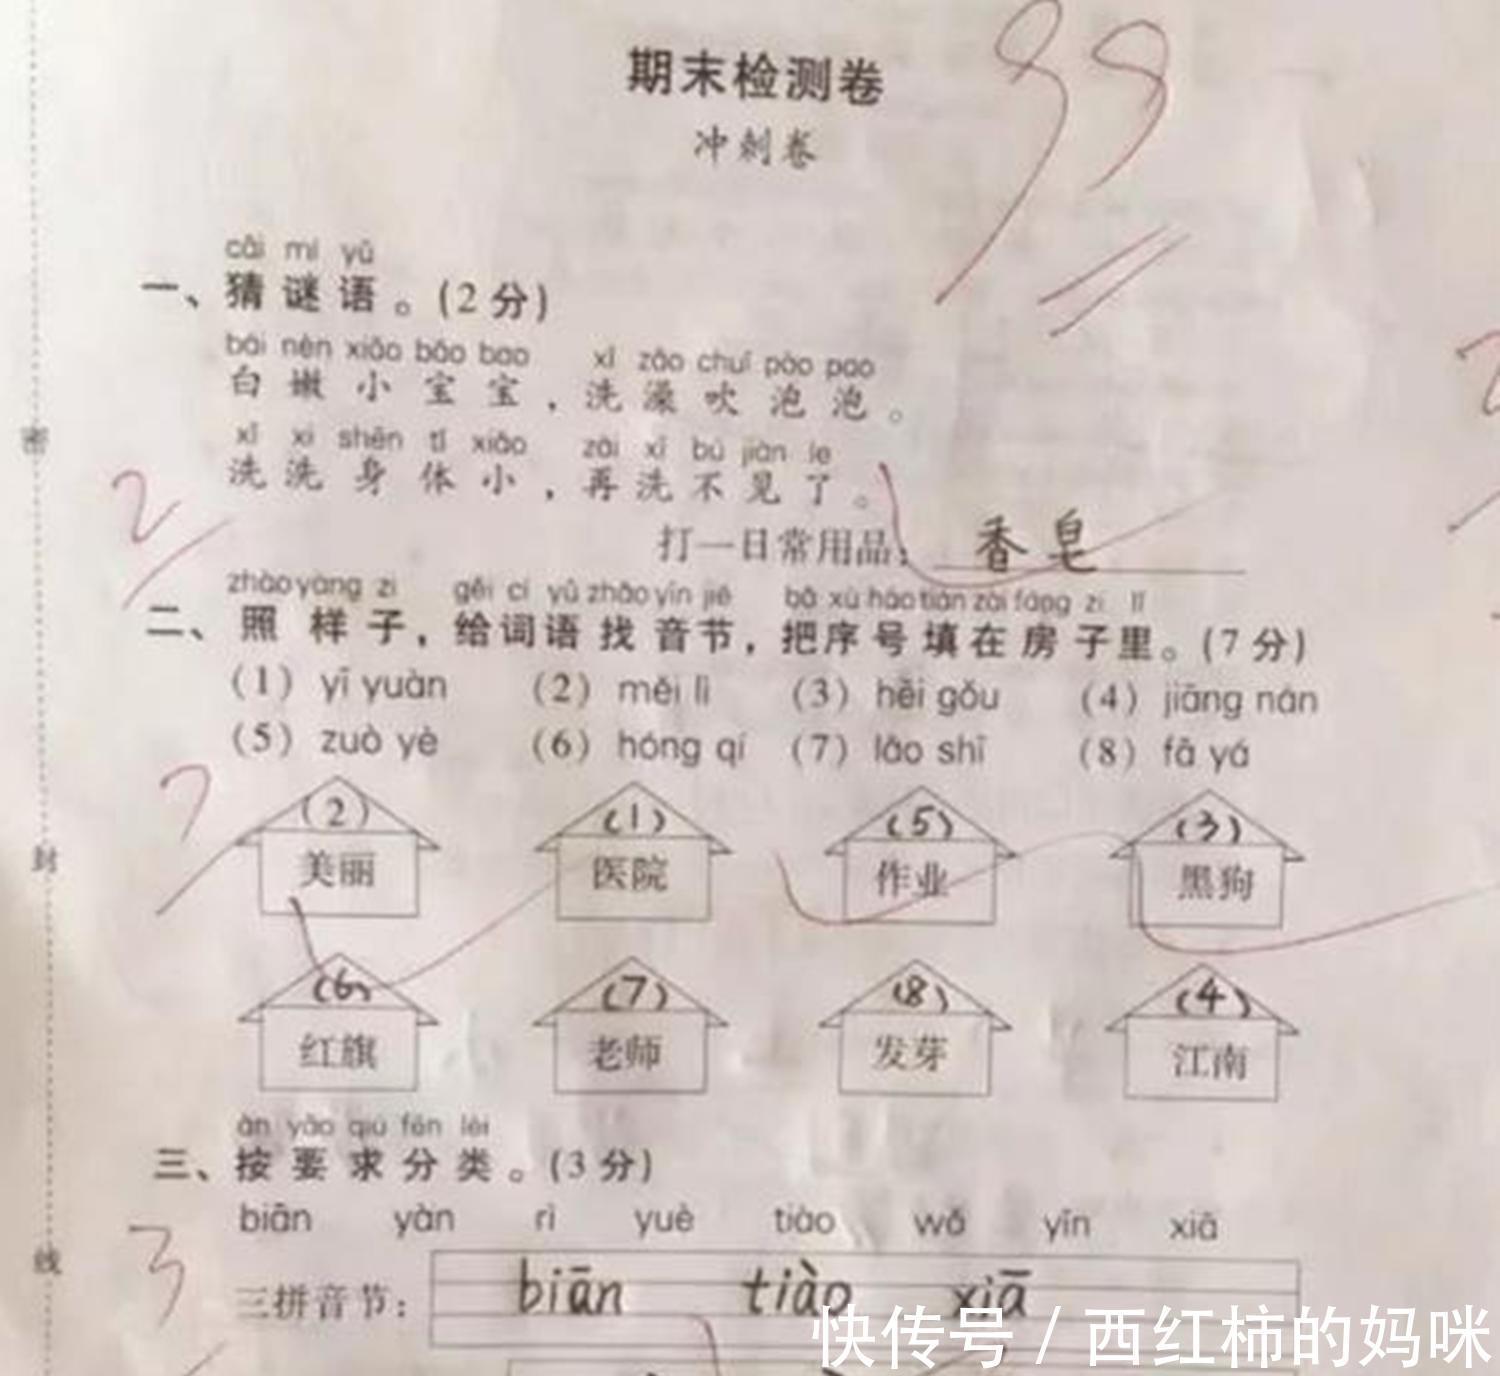 期末检测卷
99
冲刺卷
cāi mí yǔ
一、猜谜语。(2分)
bái nèn xiǎo bǎo bao xǐ zǎo chuī pào pao
白嫩小宝宝，洗澡吹泡泡。
xǐ xi shēn tǐ xiǎo zài xǐ bú jiàn le
洗洗身体小，再洗不见了。
2
打一日常用品：香皂
zhào yàng zi gěi cí yǔ zhǎo yīn jié bǎ xù hào tián zài fáng zi lǐ
二、照样子，给词语找音节，把序号填在房子里。(7分)
(1) yī yuàn (2) měi lì (3) hēi gǒu (4) jiāng nán
(5) zuò yè (6) hóng qí (7) lǎo shī (8) fā yá
7
(2) (1) (5) (3)
美丽 医院 作业 黑狗
(6) (7) (8) (4)
红旗 老师 发芽 江南
àn yāo qiú fēn lèi
三、按要求分类。(3分)
biān yàn rì yuè tiào wǒ yīn xiā
3
三拼音节： biān tiào xiā
密 封 线
快传号 / 西红柿的妈咪